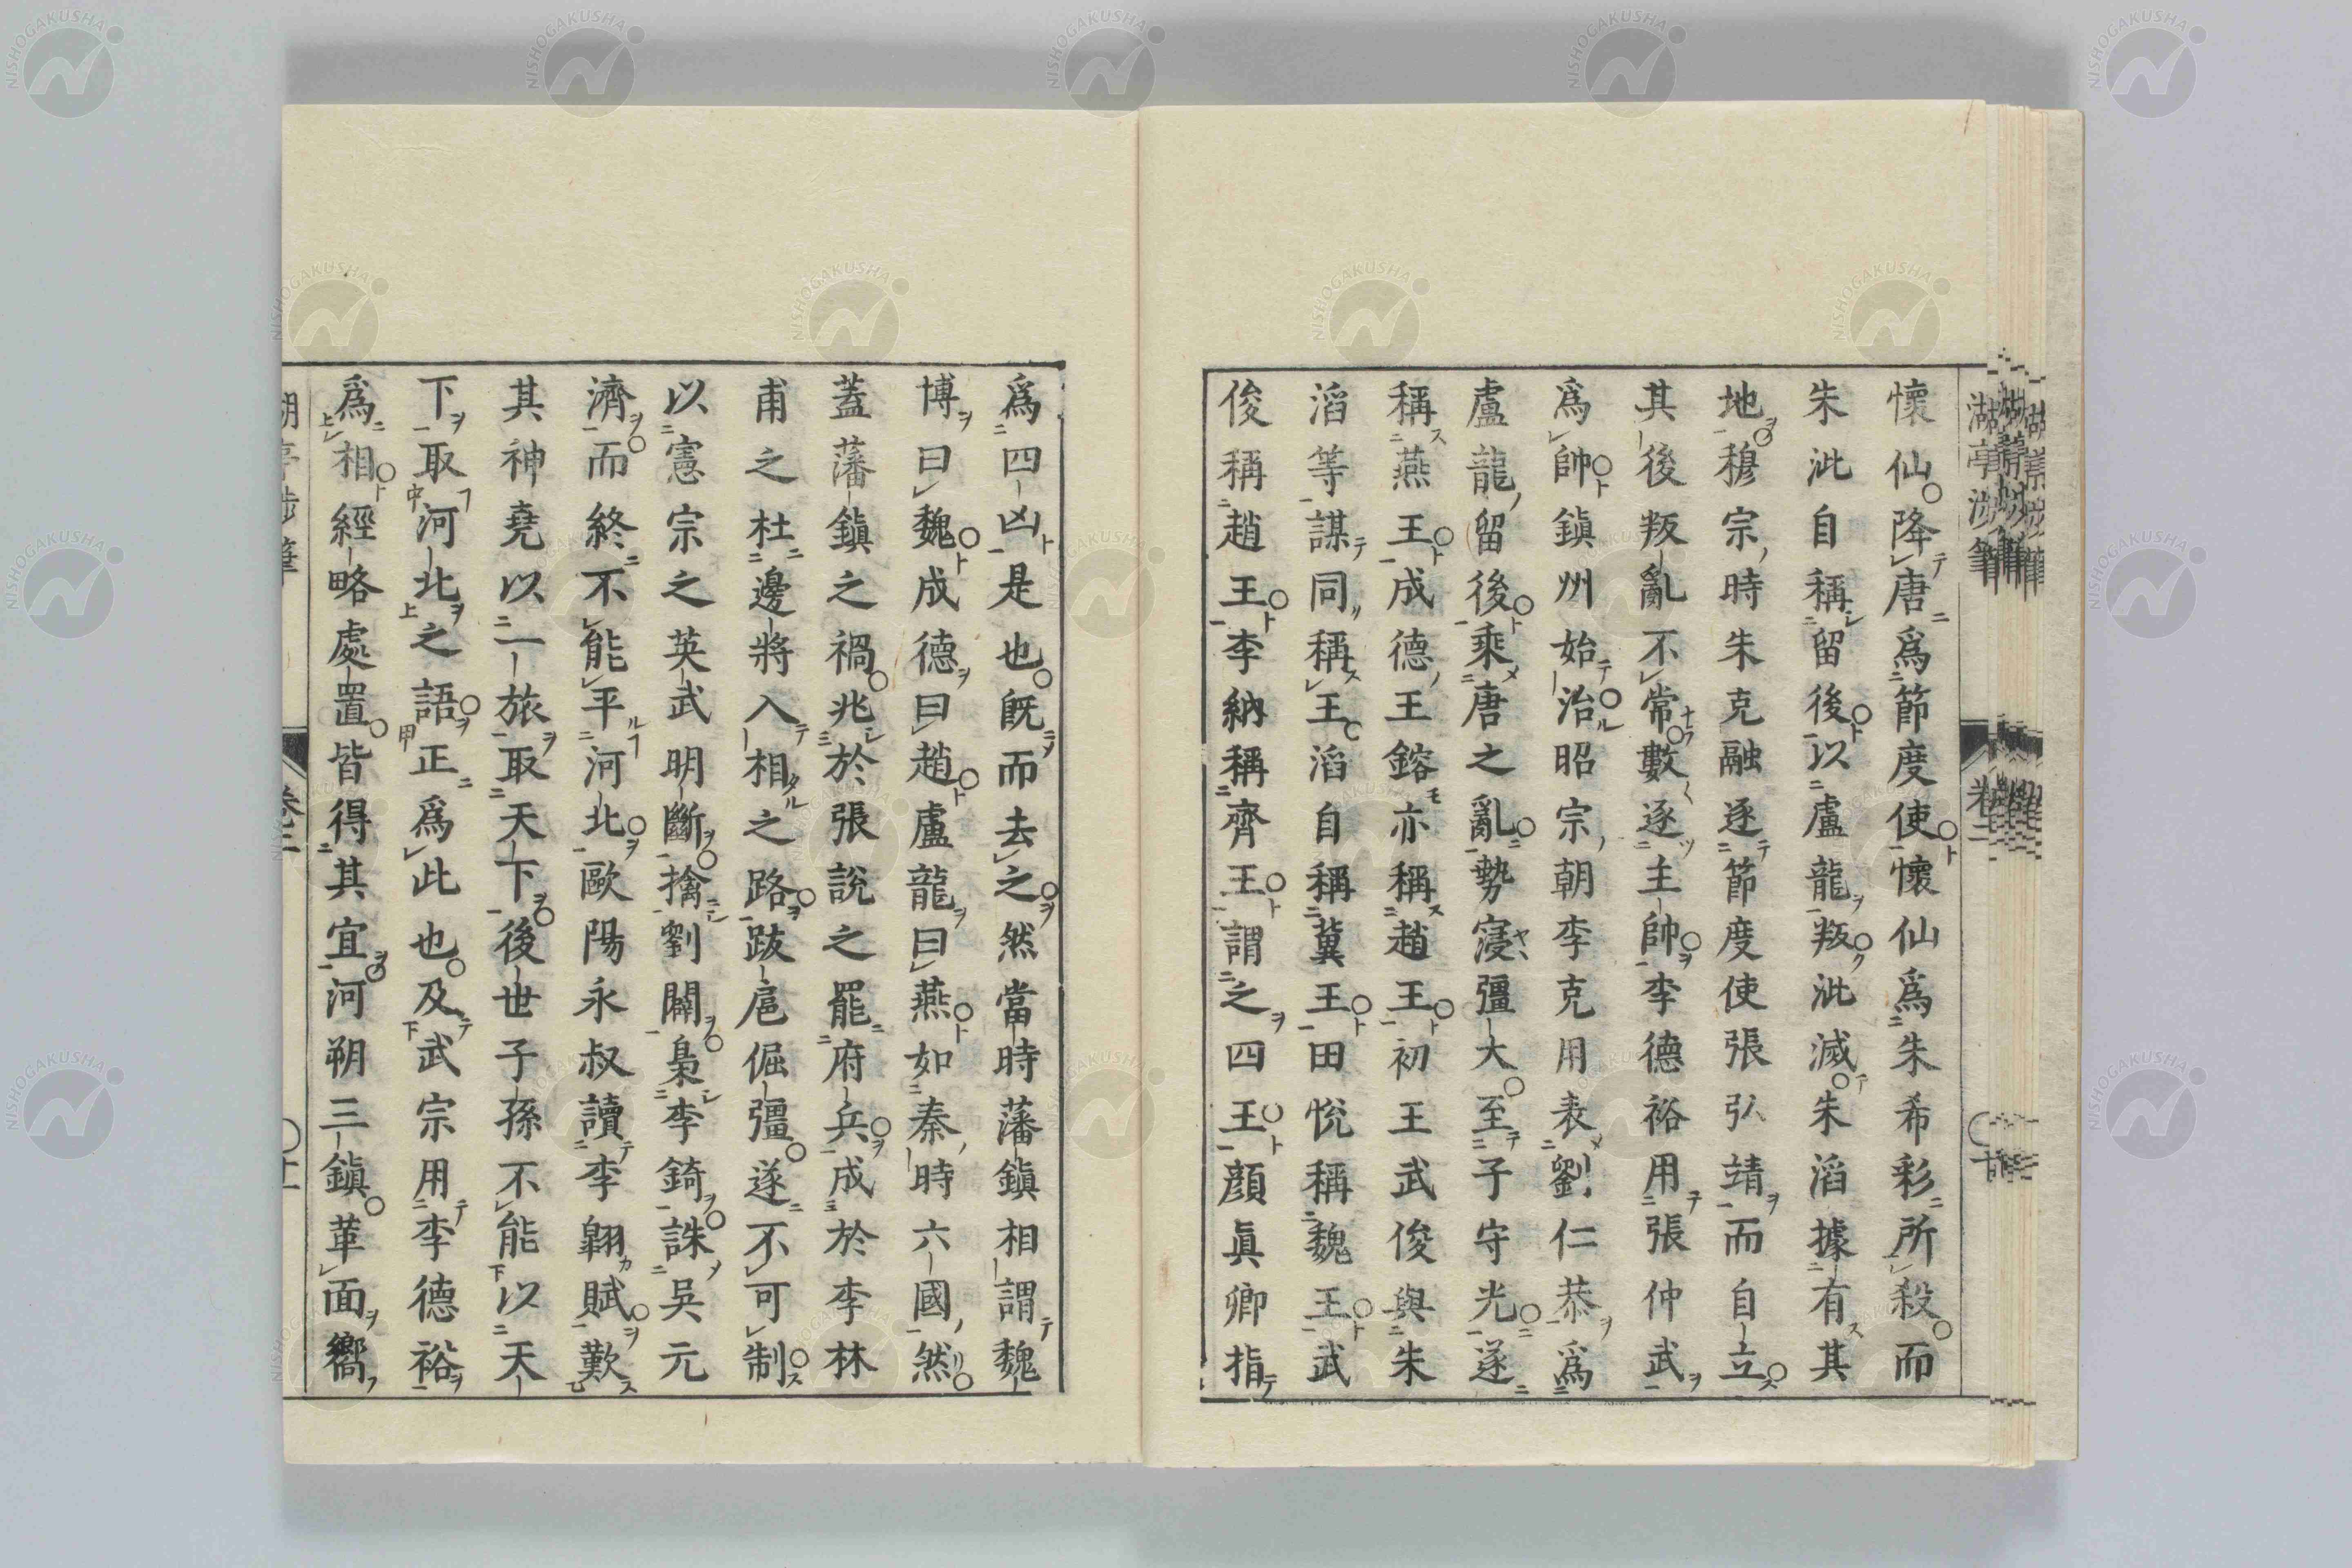 懷仙降唐爲節度使懷仙爲朱希彩所殺而
朱泚自稱留後以盧龍叛泚滅朱滔據有其
地穆宗時朱克融逐節度使張弘靖而自立
其後叛亂不常數逐主帥李德裕用張仲武
爲帥鎮州始治昭宗朝李克用表劉仁恭爲
盧龍留後乘唐之亂勢寖彊大至子守光遂
稱燕王成德王鎔亦稱趙王初王武俊與朱
滔等謀同稱王滔自稱冀王田悅稱魏王武
俊稱趙王李納稱齊王謂之四王顔眞卿指
爲四凶是也旣而去之然當時藩鎮相謂魏
博曰魏成德曰趙盧龍曰燕如秦時六國然
蓋藩鎮之禍兆於張說之罷府兵成於李林
甫之杜邊將入相之路跋扈倔彊遂不可制
以憲宗之英武明斷擒劉闢梟李錡誅吳元
濟而終不能平河北歐陽永叔讀李翱賦歎
其神堯以一旅取天下後世子孫不能以天
下取河北之語正爲此也及武宗用李德裕
爲相經略處置皆得其宜河朔三鎮革面嚮
卷二
NISHOGAKUSHA